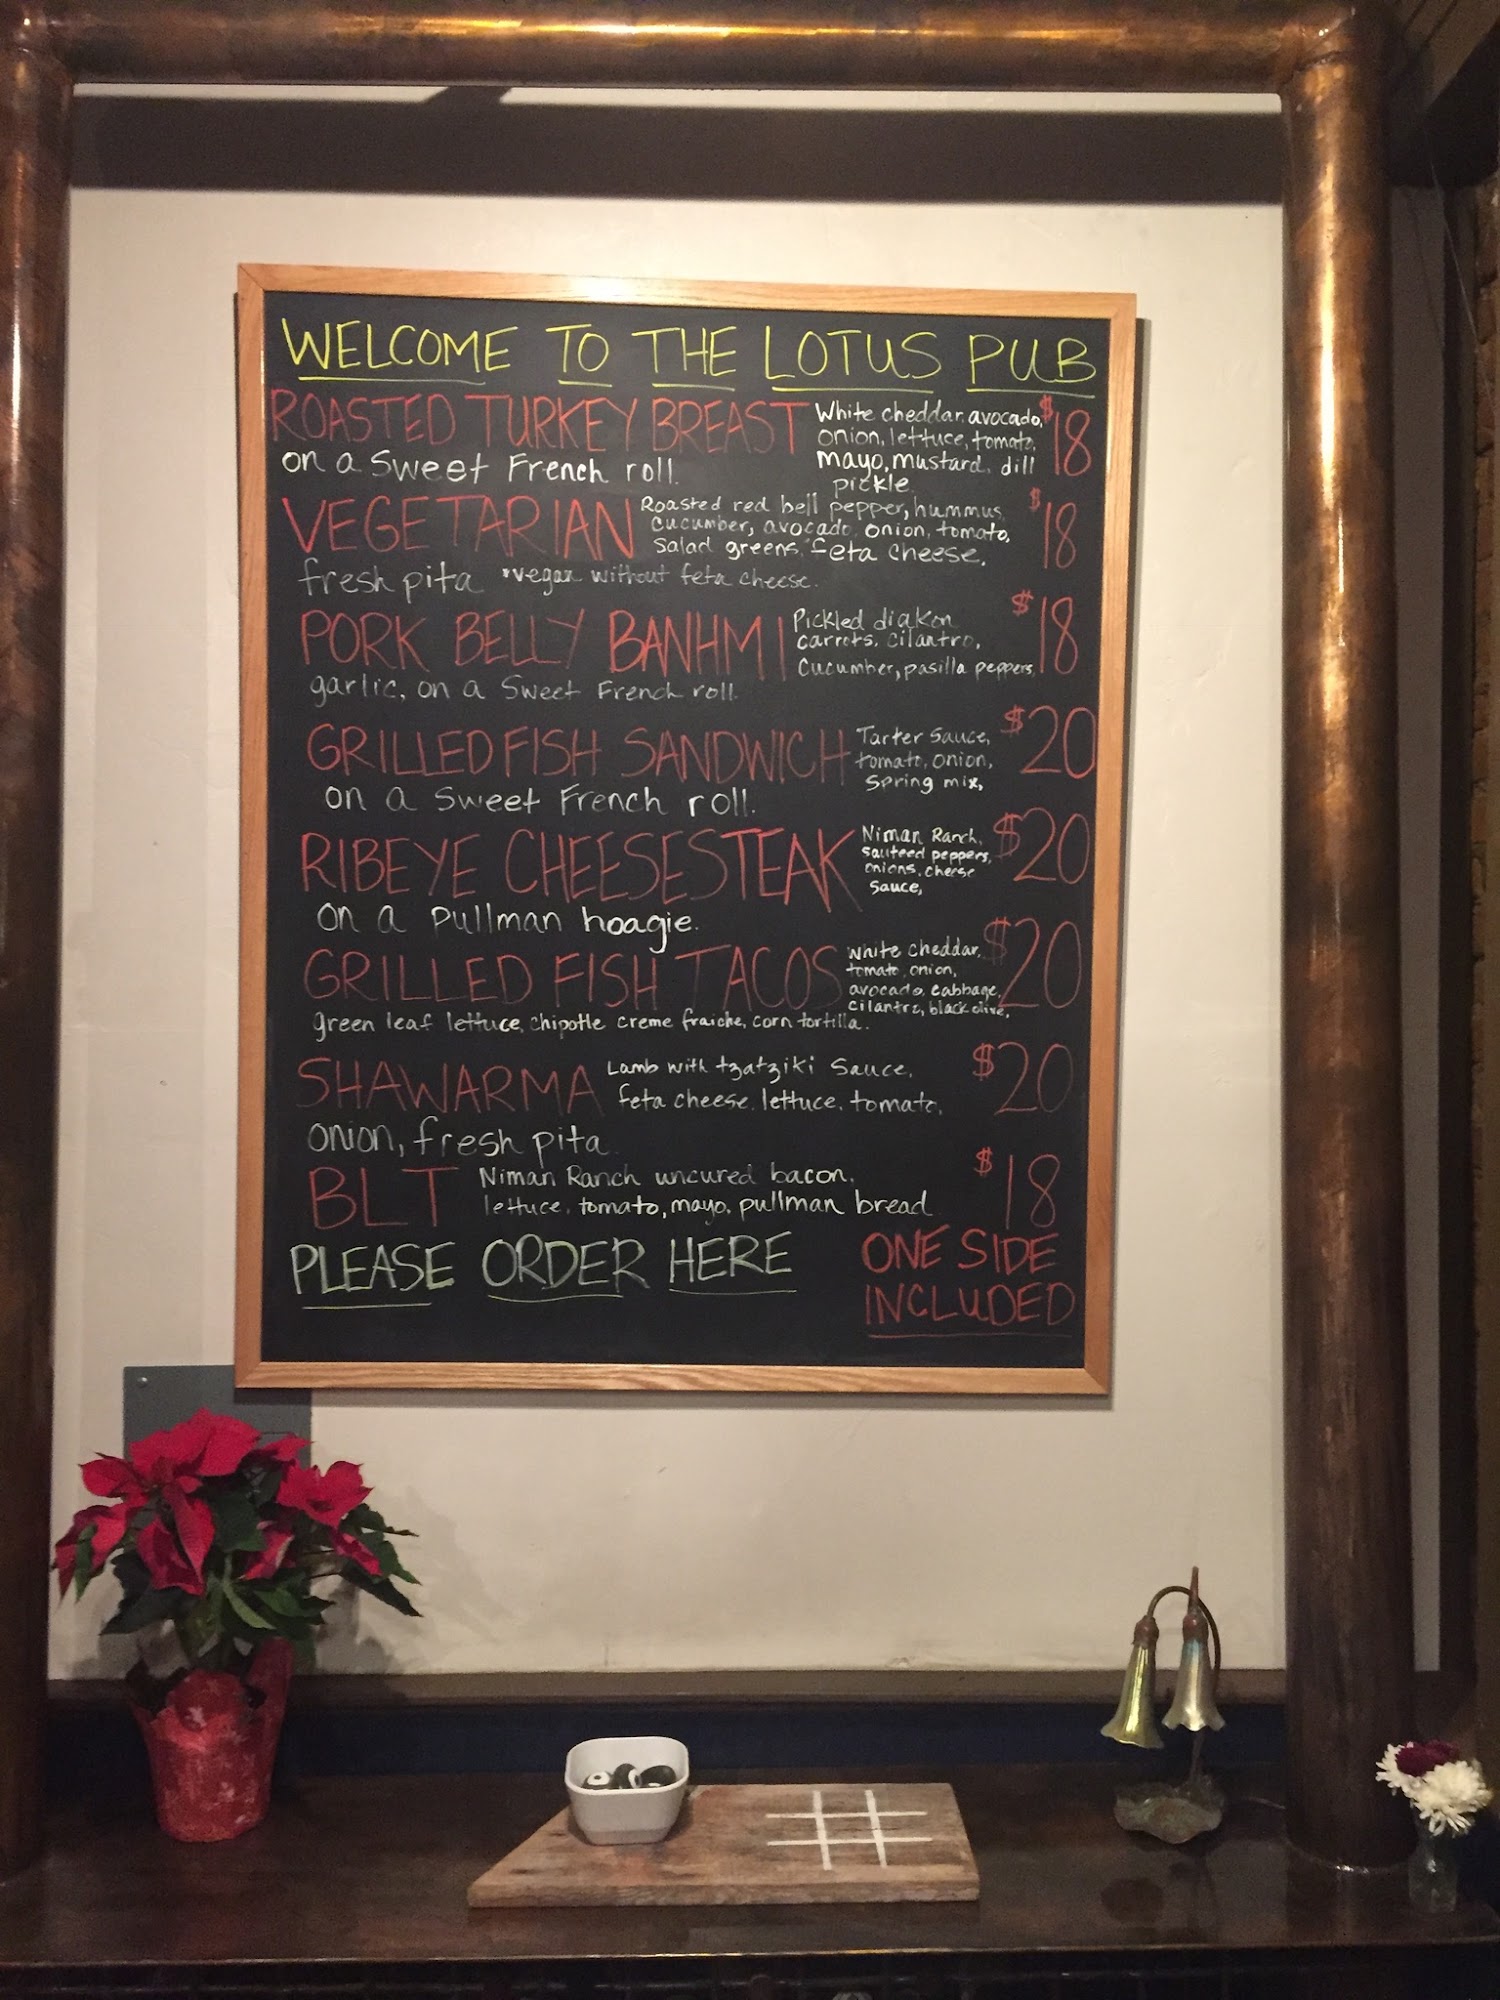 WELCOME TO THE LOTUS PUB
ROASTED TURKEY BREAST White cheddar, avocado, $18
onion, lettuce, tomato,
on a Sweet French roll. mayo, mustard, dill
pickle.
VEGETARIAN Roasted red bell pepper, hummus, $18
cucumber, avocado, onion, tomato,
Salad greens, feta cheese,
fresh pita *vegan without feta cheese.
PORK BELLY BANHMI Pickled diakon $18
carrots, cilantro,
Cucumber, pasilla peppers,
garlic, on a Sweet French roll.
GRILLED FISH SANDWICH Tarter Sauce, $20
tomato, onion,
Spring mix,
on a Sweet French roll.
RIBEYE CHEESESTEAK Niman Ranch, $20
Sauteed peppers,
onions, cheese
Sauce,
on a Pullman hoagie.
GRILLED FISH TACOS White Cheddar, $20
tomato, onion,
avocado, cabbage,
cilantro, black olive,
green leaf lettuce, chipotle creme fraiche, corn tortilla.
SHAWARMA Lamb with tzatziki Sauce, $20
feta cheese, lettuce, tomato,
onion, fresh pita.
BLT Niman Ranch uncured bacon, $18
lettuce, tomato, mayo, pullman bread
PLEASE ORDER HERE
ONE SIDE
INCLUDED